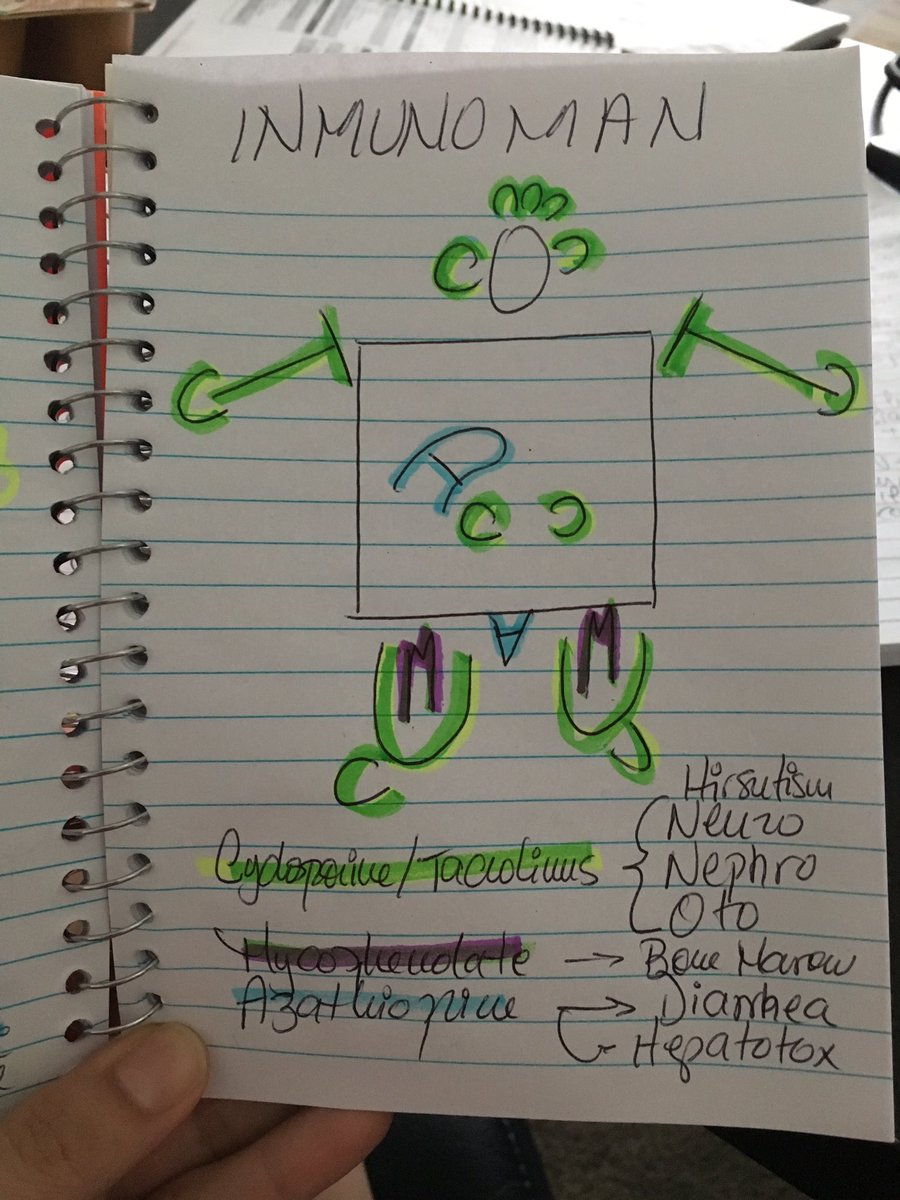 INMUNOMAN
C C C
C O C
C T T C
A
C C
A
M M
C C
Hirsutism
Neuro
Cyclosporine/Tacrolimus { Nephro
Oto
Mycophenolate → Bone Marow
Azathioprine → Diarrhea
→ Hepatotox